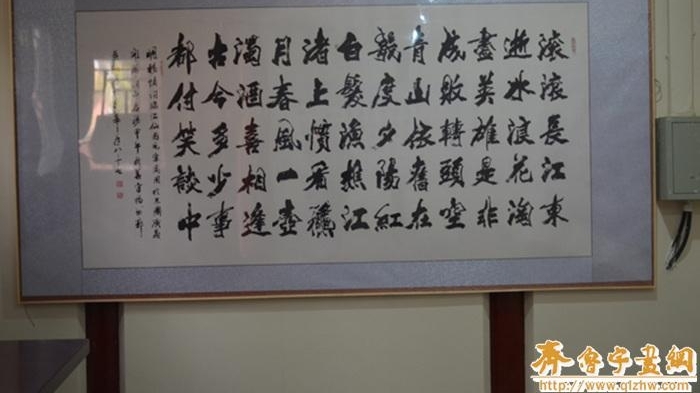 滚滚長江東
逝水浪花淘
盡英雄是非
成敗轉頭空
青山依舊在
幾度夕陽紅
白髮漁樵江
渚上慣看秋
月春風一壺
濁酒喜相逢
古今多少事
都付笑談中
齊魯字畫網
http://www.qlzhw.com